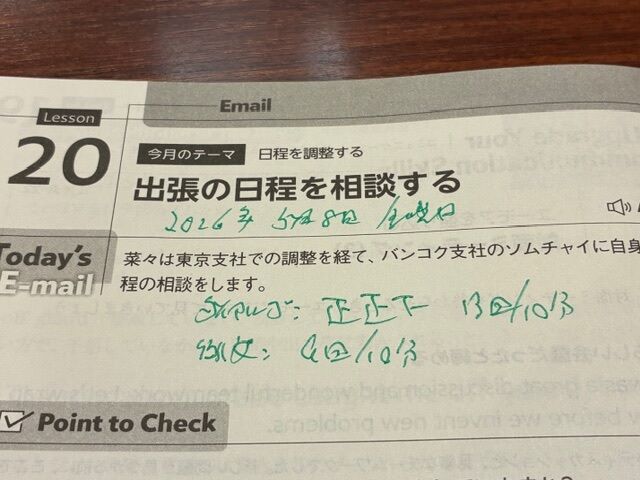 Email
Lesson
20
今月のテーマ 日程を調整する
出張の日程を相談する
2026年 5月8日 金曜日
Today's
E-mail
菜々は東京支社での調整を経て、バンコク支社のソムチャイに自身
程の相談をします。
ダイアログ: 正正下 13回/10分
例文: 4回/10分
Point to Check